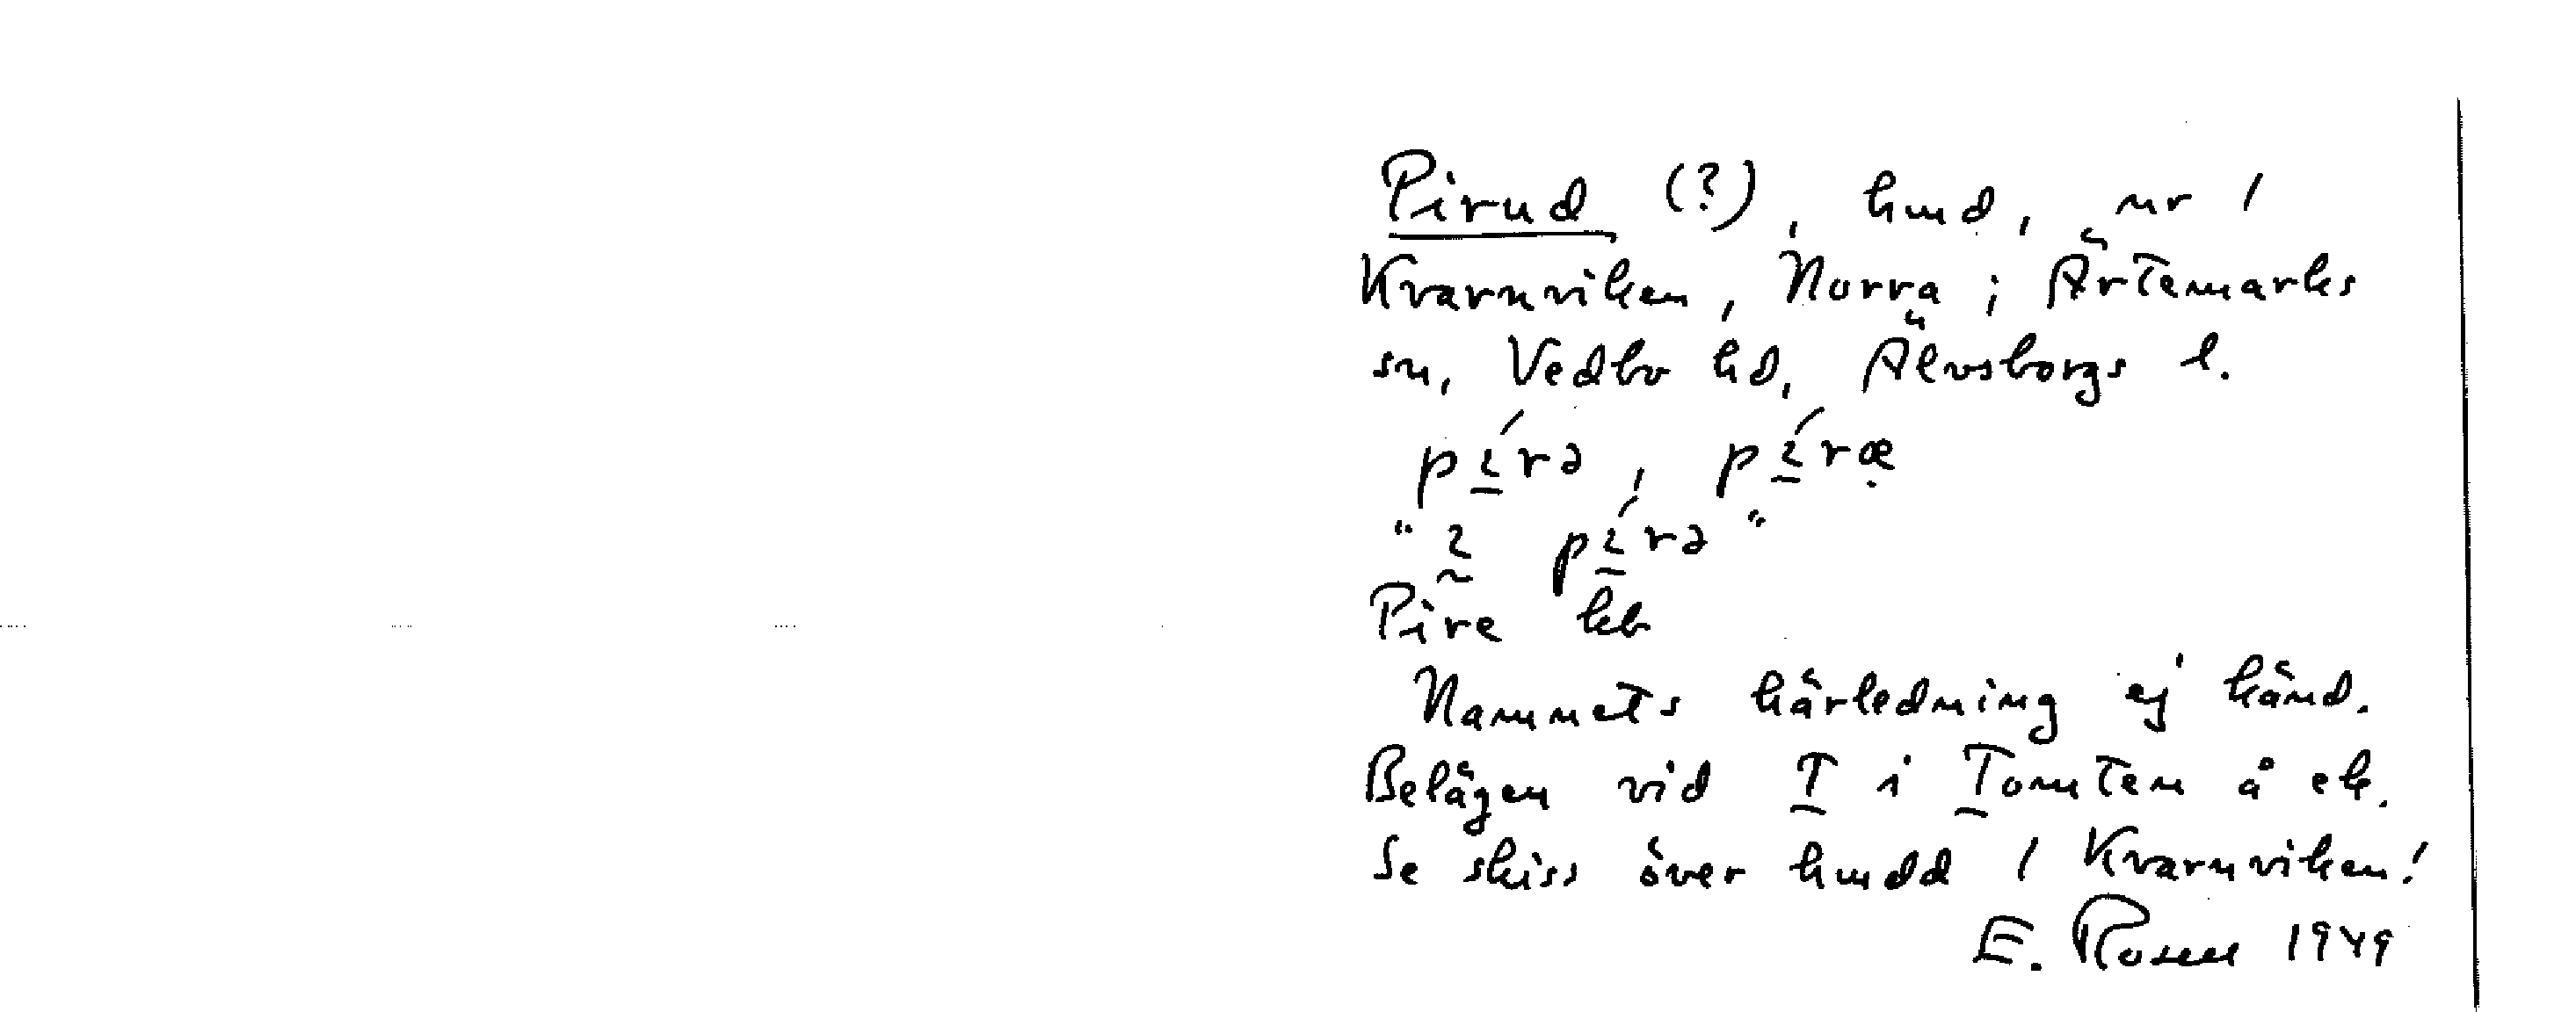 Pirud (?), hmd, nr 1
Kvarnviken, Norra; Ärtemarks
sn, Vedbo hd, Älvsborgs l.
pɩ́rə, pɩ́ræ
"ɩ pɩ́rə"
Pire kb
Namnets härledning ej känd.
Belägen vid T i Tomten å ek.
Se skiss över hmdd 1 Kvarnviken!
E. Rosell 1949